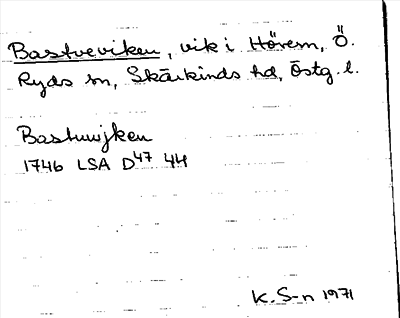 Bastveviken, vik i Hövern, Ö.
Ryds sn, Skärkinds hd, Östg. l.
Bastuwjken
1746 LSA D47 44
K. S-n 1971